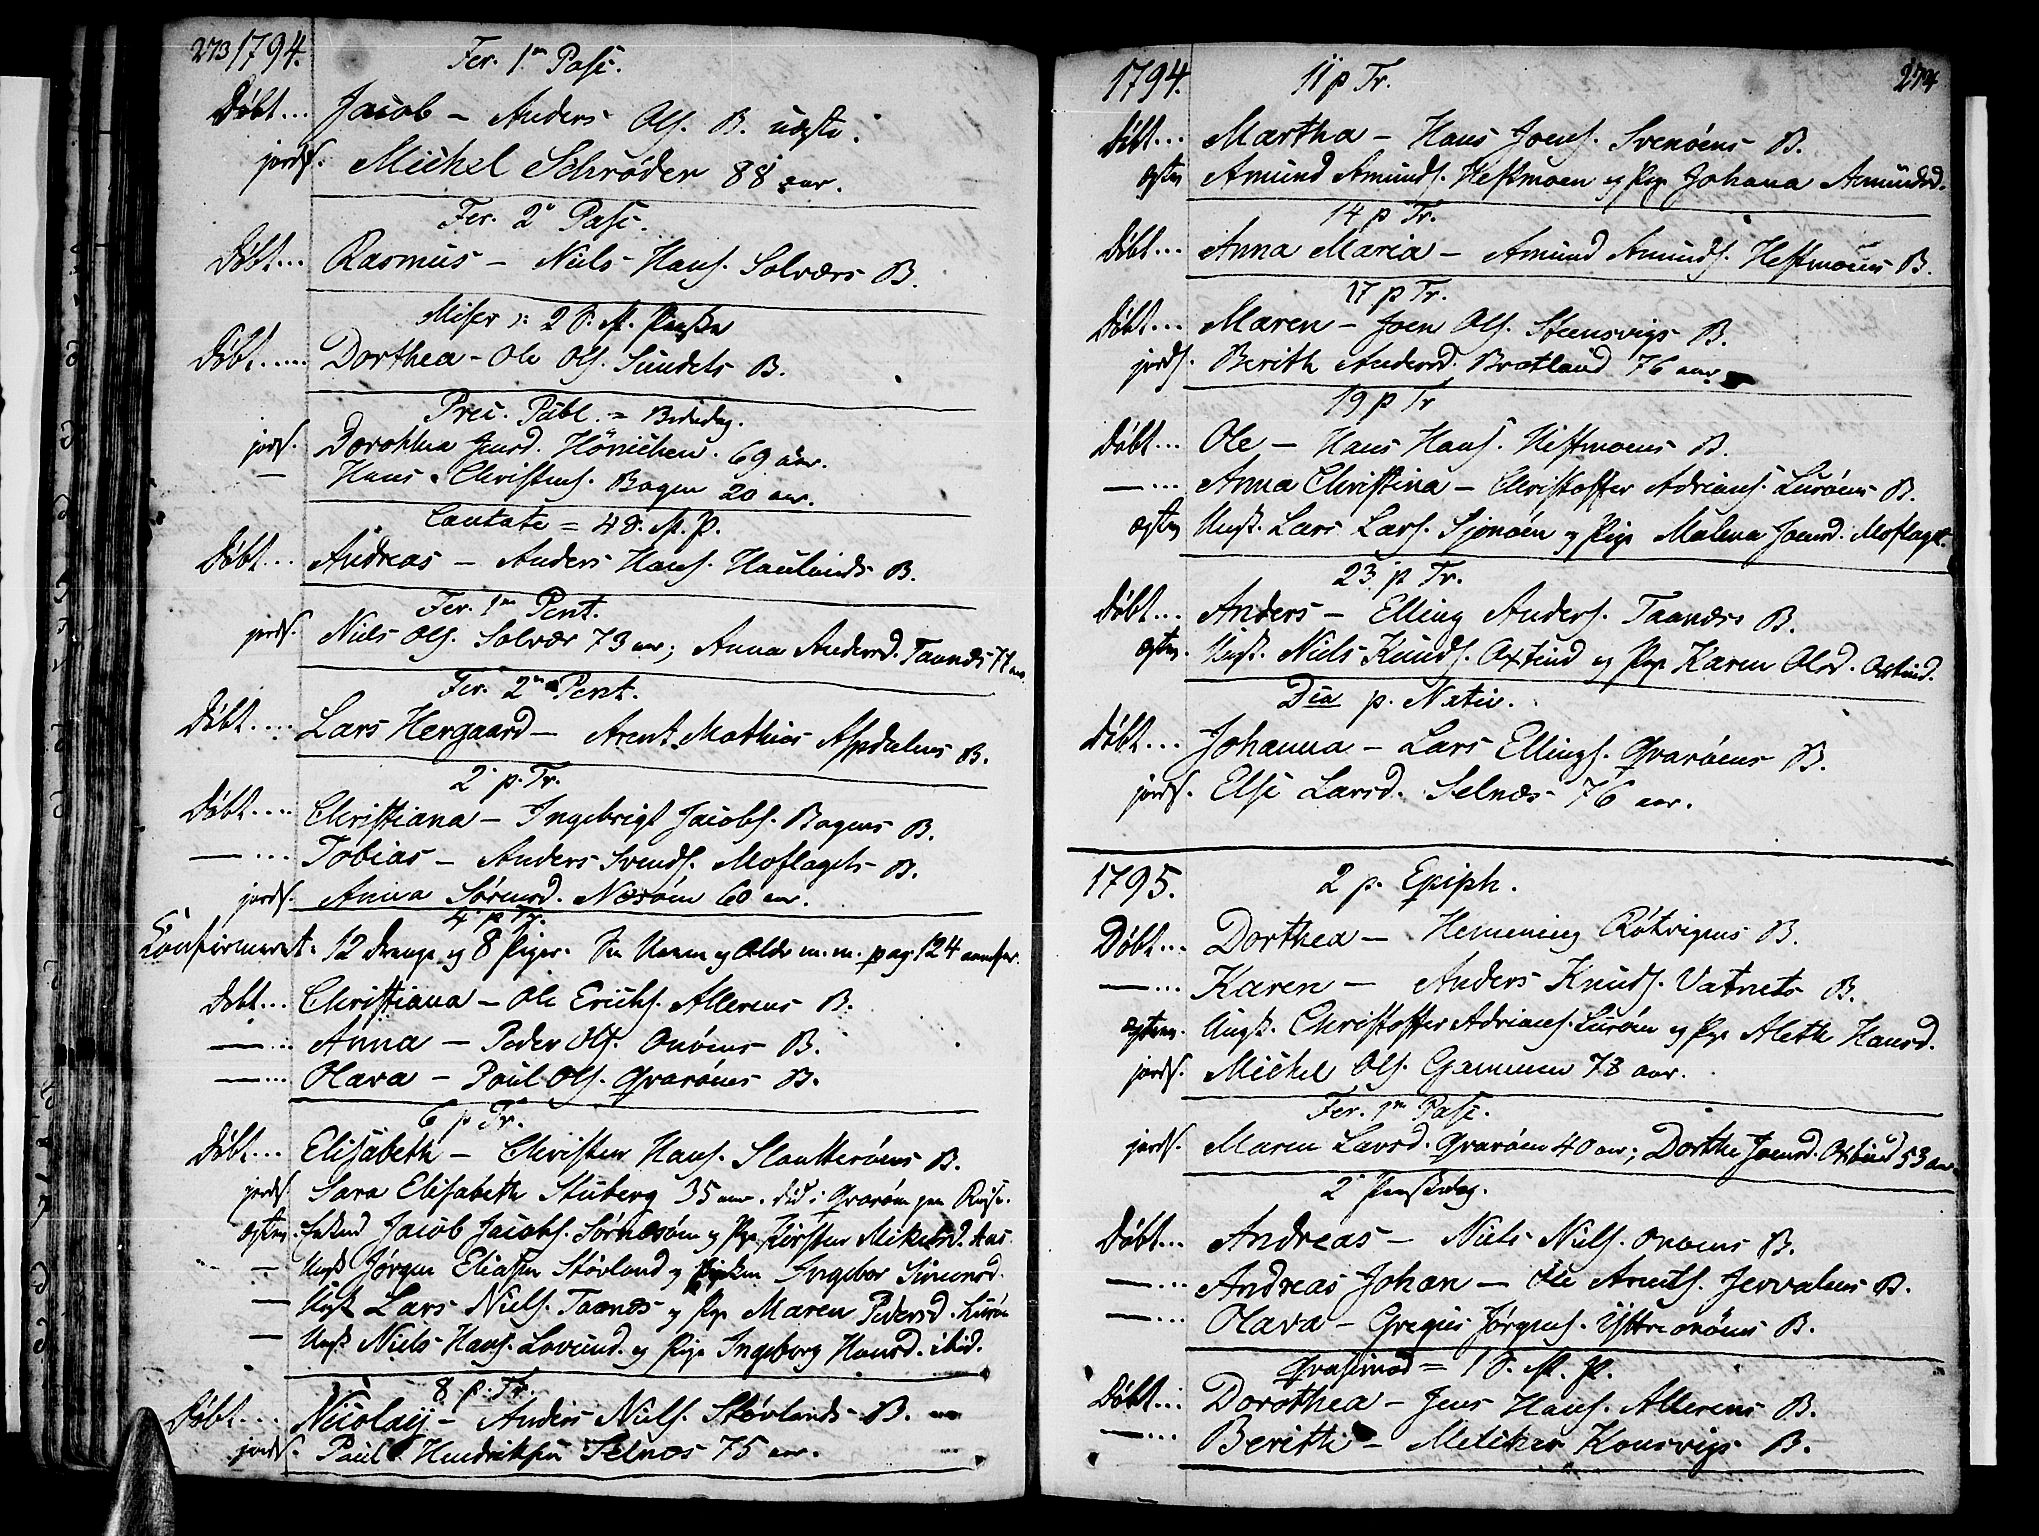 273 1794. Fer. 1.m Pasc.
Döbt... Jacob - Anders Ols. B.
jords. Michel Schrøder 88 aar.
Fer. 2. Pasc.
Döbt... Rasmus - Niels Hans. Solværs B.
Miser : 2 S. M. Paaske
Döbt..... Dorthea - Ole Ols. Sundets B.
Prec. Publ. = Bededag.
jords. Dorothea Jensd. Hönichen. 69 aar.
— Hans Christens. Bogen 20 aar.
Cantate = 4 S. M. P.
Döbt... Andreas - Anders Hans. Haulands B.
Fer. 1m Pent.
jords. Niels Ols. Solvær 73 aar; Anna Andersd. Taanæs 71 aar.
Fer. 2. Pent.
Döbt.... Lars Hergaard - Arent Mathias Aspdalens B.
2. p. Tr.
Döbt.... Christiana - Ingebrigt Jacobs. Bogens B.
—... Tobias - Anders Svends. Moflagets B.
jords. Anna Sörensd. Næsöen 60 aar.
4. p Tr.
Confirmeret: 12 drenge og 8 Piger. Navn og Alder m. m. pag. 124
Döbt... Christiana - Ole Erichs. Allerens B.
—... Anna - Peder Ols. Onöens B.
—... Olava - Poul Ols. Qvaröens B.
6 p Tr.
Döbt... Elisabeth - Christen Hans. Slautteröens B.
jords. Sara Elisabeth Stuberg 35 aar. död i Qvaröen
ægtev. Jacob Jacobs. Sörnæsöen og Pge Kirsten Mikelsd.
— Ungk. Jörgen Eliasen Stövland og Pigen Ingebor Simonsd.
— Ungk. Lars Niels. Taanæs og Pge Maren Pedersd. Luröen
— Ungk. Niels Hans. Lovund og Pige Ingeborg Hansd. ibid.
8 p. Tr.
Döbt.... Nicolaij - Anders Niels. Stövlands B.
jords. Paul Hendriksen Selnæs 75 aar.
1794. 11 p Tr. 274
Döbt... Martha - Hans Joens. Svenöens B.
ægtev. Amund Amunds. Hestmoen og Pge Johana Amundsd.
14 p Tr.
Döbt... Anna Maria - Amund Amunds. Hestmoens B.
17 p Tr.
Döbt... Maren - Joen Ols. Steensvigs B.
jords. Berith Andersd. Bratland 76 aar
19 p Tr
Döbt... Ole - Hans Hans. Hestmoens B.
—... Anna Christina - Christoffer Adrians. Luröens B.
ægtev. Ungk. Lars Lars. Sjonöen og Pige Malena Joensd. Moflaget.
23. p Tr.
Döbt... Anders - Elling Anders. Taanæs B.
ægtev. Ungk. Niels Knuds. Oxtind og Pge Karen Olsd. Oxtind.
D p. Nativ.
Döbt... Johanna - Lars Ellings. Qvaröens B.
jords. Else Larsd. Selnæs 76 aar.
1795. 2 p. Epiph.
Döbt... Dorthea - Hemming Rötvigens B.
—... Karen - Anders Knuds. Vatnets B.
ægtev. Ungk. Christoffer Adrians. Luröen og Pge Aleth Hansd.
jords. Michel Ols. Gammen 73 aar.
Fer. 1m Pasc.
jords. Maren Larsd. Qvaröen 40 aar; Dorthe Joensd. Oxtind 53 aar
2. Paaskedag.
Döbt... Andreas - Niels Niels. Onöens B.
—... Andreas Johan - Ole Arents. Jervalens B.
—... Olava - Gregus Jörgens. Ystreonöens B.
Qvasimod = 1 S. M. P.
Döbt... Dorothea - Jens Hans. Allerens B.
—... Berith - Meliker Konsvigs B.